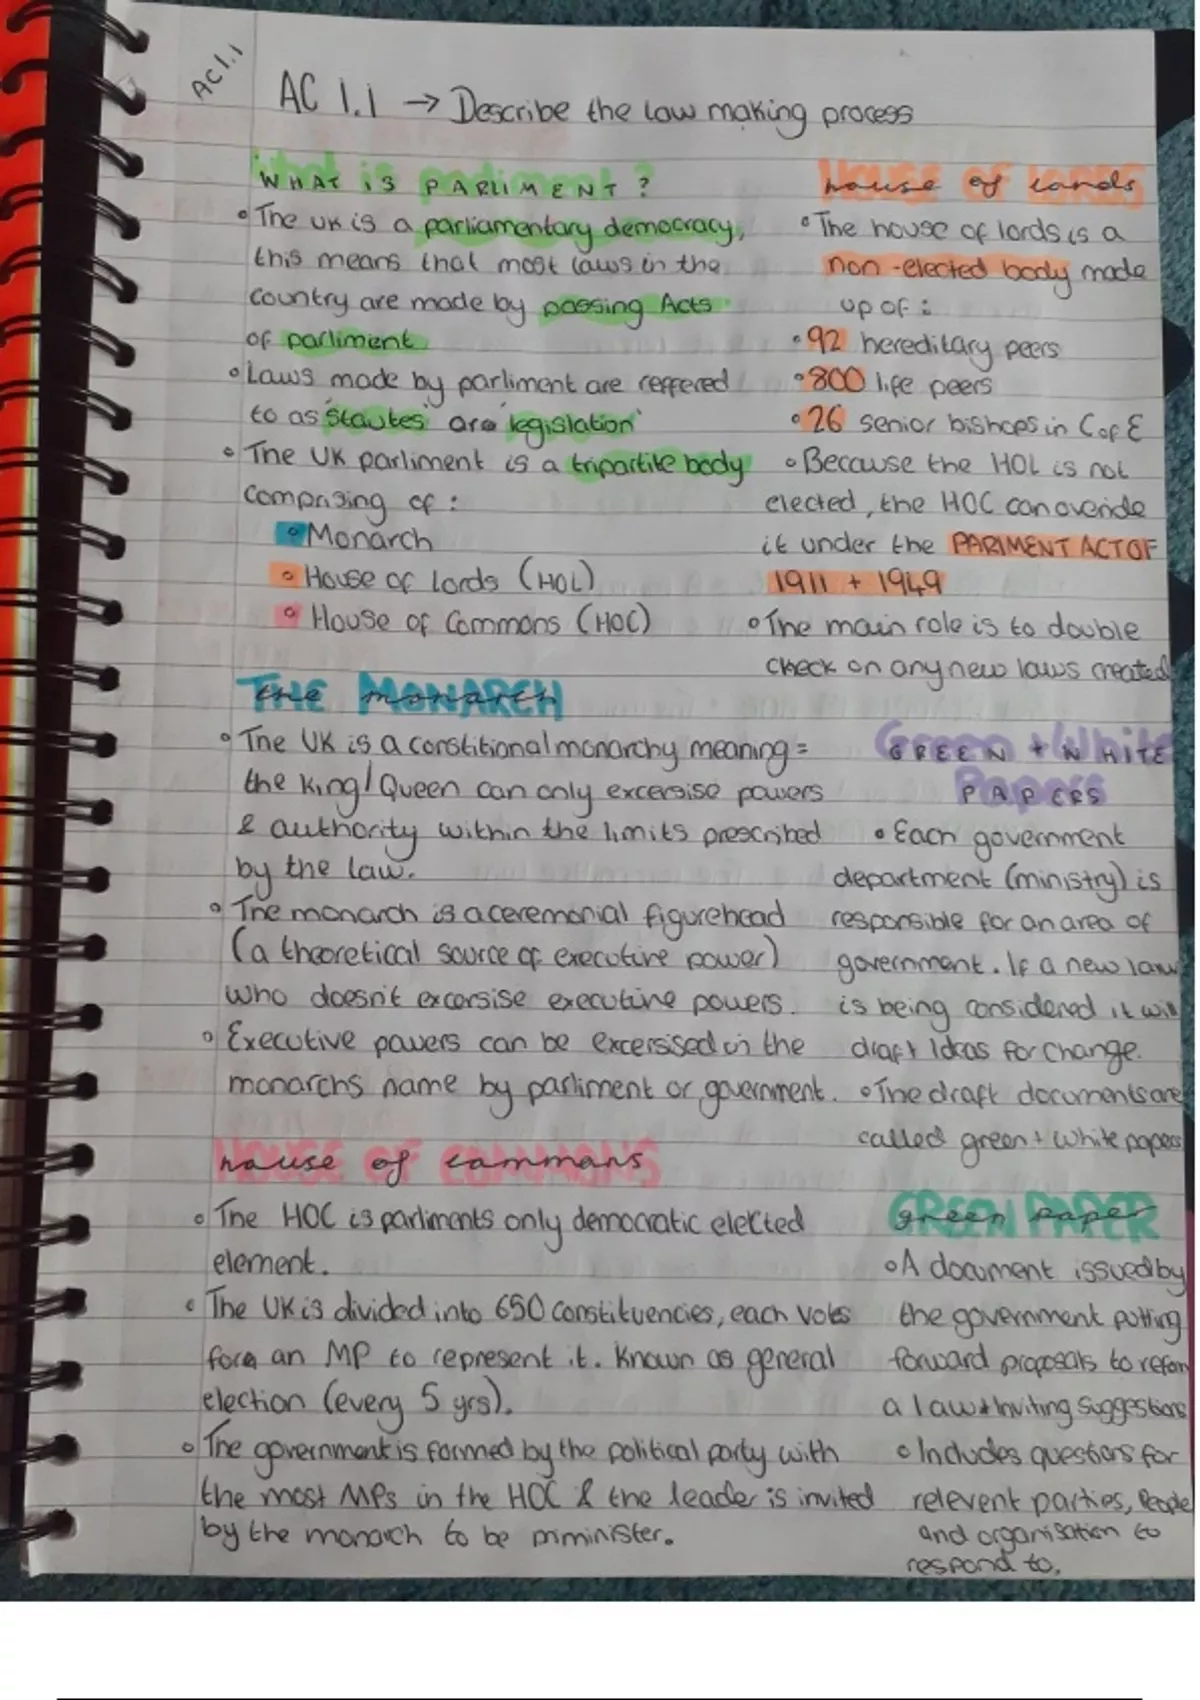 AC1.1
AC 1.1 → Describe the law making process
WHAT IS PARLIMENT ?
• The UK is a parliamentary democracy,
this means that most laws in the
country are made by passing Acts
of parliment
• Laws made by parliment are reffered
to as 'Stautes' or 'legislation'
• The UK parliment is a tripartite body
comprising of :
• Monarch
• House of Lords (HOL)
• House of Commons (HOC)
THE MONARCH
• The UK is a constitional monarchy meaning =
the King/Queen can only excersise powers
& authority within the limits prescribed
by the law.
• The monarch is a ceremonial figurehead
(a theoretical source of executive power)
who doesn't excersise executive powers.
• Executive powers can be excersised in the
monarchs name by parliment or government.
HOUSE OF COMMONS
• The HOC is parliments only democratic elected
element.
• The UK is divided into 650 constituencies, each votes
for an MP to represent it. Known as general
election (every 5 yrs).
• The government is formed by the political party with
the most MPs in the HOC & the leader is invited
by the monarch to be priminister.
HOUSE OF LORDS
• The house of lords is a
non-elected body made
up of :
• 92 hereditary peers
• 800 life peers
• 26 senior bishops in C of E
• Because the HOL is not
elected, the HOC can overide
it under the PARIMENT ACT OF
1911 + 1949
• The main role is to double
check on any new laws created
GREEN + WHITE
PAPERS
• Each government
department (ministry) is
responsible for an area of
government. If a new law
is being considered it will
draft Ideas for change.
• The draft documents are
called green + white papers
GREEN PAPER
• A document issued by
the government putting
forward proposals to reform
a law + Inviting Suggestions
• Includes questions for
relevent parties, People
and organisation to
respond to.